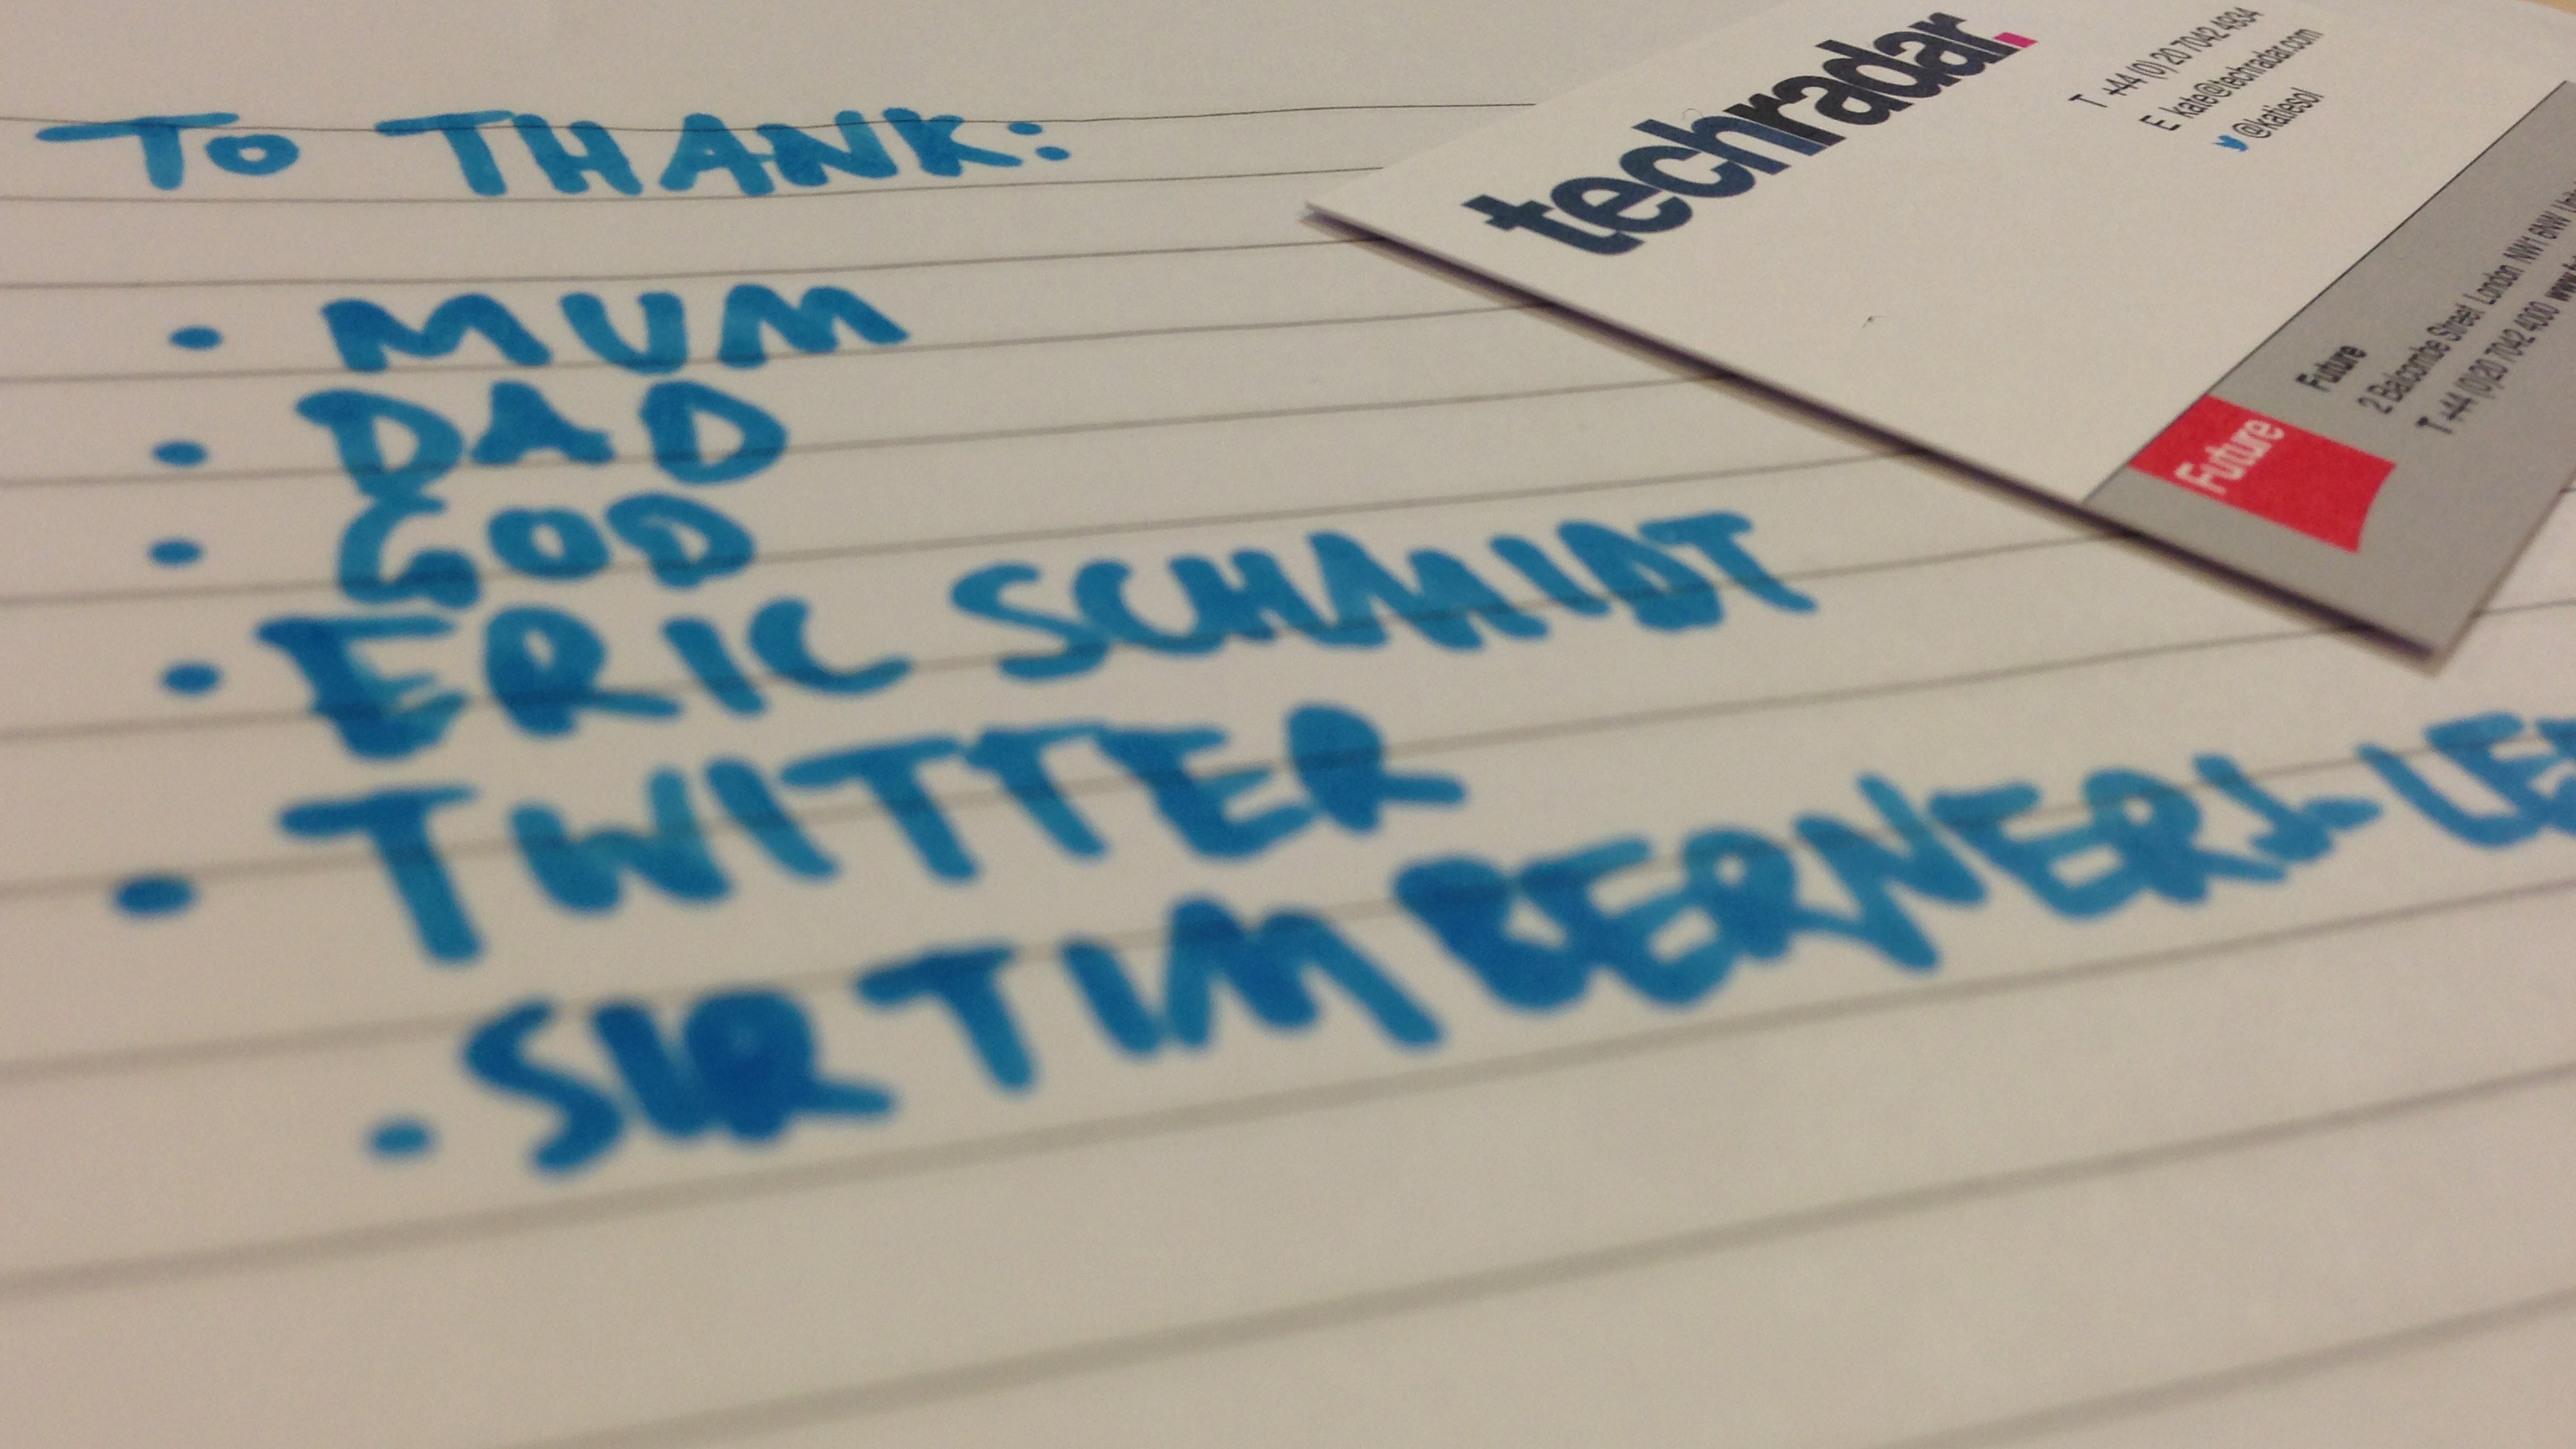 To THANK:
• MUM
• DAD
• GOD
• ERIC SCHMIDT
• TWITTER
• SIR TIM BERNERS-LEE
techradar.
T +44 (0)20 7042 4934
E kate@techradar.com
@katiesol
Future
Future
2 Balcombe Street London NW1 6NW
T +44 (0)20 7042 4000